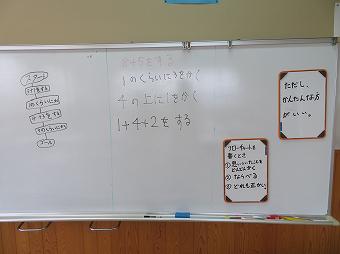 スタート
1のくらいに3をかく
ゴール
8+5をする
1のくらいに3をかく
4の上に1をかく
1+4+2をする
ただし、
かんたんな方
がいい。
フローチャートを
書くとき
①思いついたことを
どんどんかく
②ならべる
③どれも正かい